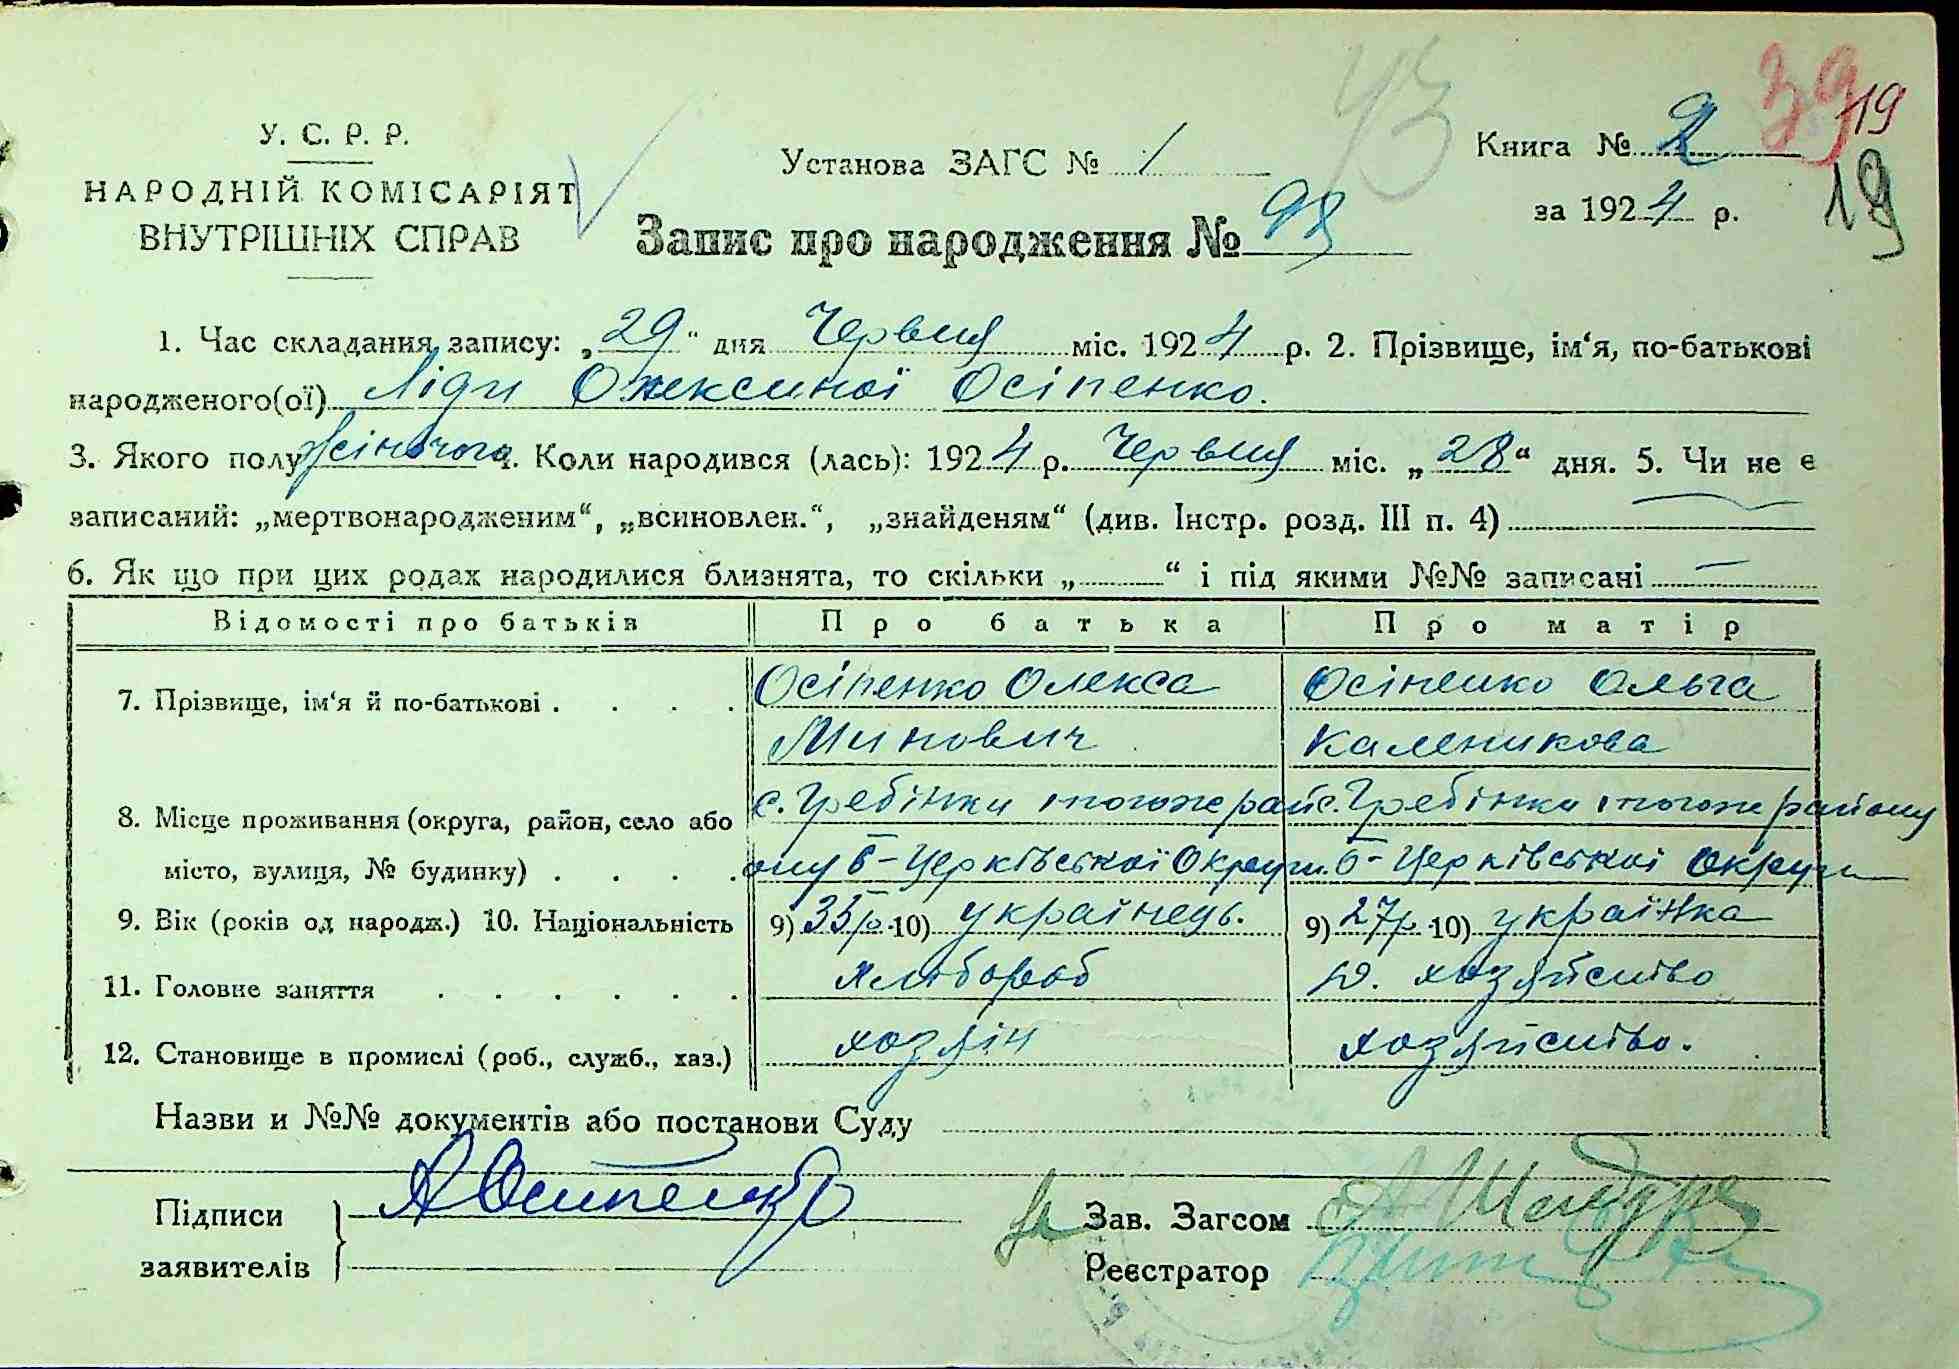 43
39
19
У. С. Р. Р.
НАРОДНІЙ КОМІСАРІЯТ
ВНУТРІШНІХ СПРАВ
Установа ЗАГС № 1
Книга № 2
за 1924 р.
19
Запис про народження № 98
1. Час складання запису: „29“ дня Червня міс. 1924 р. 2. Прізвище, ім‘я, по-батькові
народженого(ої) Ліди Олексиної Осіпенко.
3. Якого полу жіночого 4. Коли народився (лась): 1924 р. Червня міс. „28“ дня. 5. Чи не є
записаний: „мертвонародженим“, „всиновлен.“, „знайденям“ (див. Інстр. розд. III п. 4)
6. Як що при цих родах народилися близнята, то скільки „ “ і під якими №№ записані —
Відомості про батьків Про батька Про матір
7. Прізвище, ім‘я й по-батькові . . . . Осіпенко Олекса Осіпенко Ольга
Минович Каленикова
8. Місце проживання (округа, район, село або с. Гребінки тогоже рай с. Гребінки тогоже району
місто, вулиця, № будинку) . . . . ону Б-Церківської Округи. Б-Церківської округи
9. Вік (років од народж.) 10. Національність 9) 33 р. 10) українець. 9) 27 р. 10) українка
11. Головне заняття . . . . . . хлібороб д. хозяйство
12. Становище в промислі (роб., служб., хаз.) хозяін хозяйство.
Назви и №№ документів або постанови Суду
Підписи
заявителів
АОсипенко
Зав. Загсом
Реєстратор